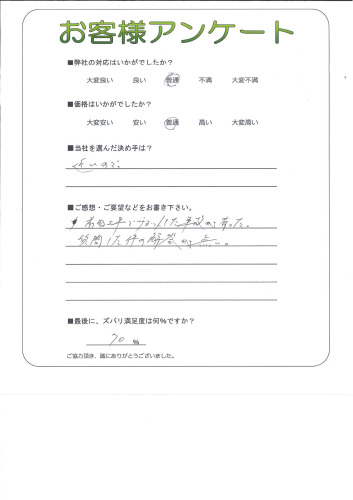 お客様アンケート
■弊社の対応はいかがでしたか?
大変良い 良い 普通 不満 大変不満
■価格はいかがでしたか?
大変安い 安い 普通 高い 大変高い
■当社を選んだ決め手は?
近いので。
■ご感想・ご要望などをお書き下さい。
った。
質問した件の解答が
■最後に、ズバリ満足度は何%ですか?
70 %
ご協力頂き、誠にありがとうございました。